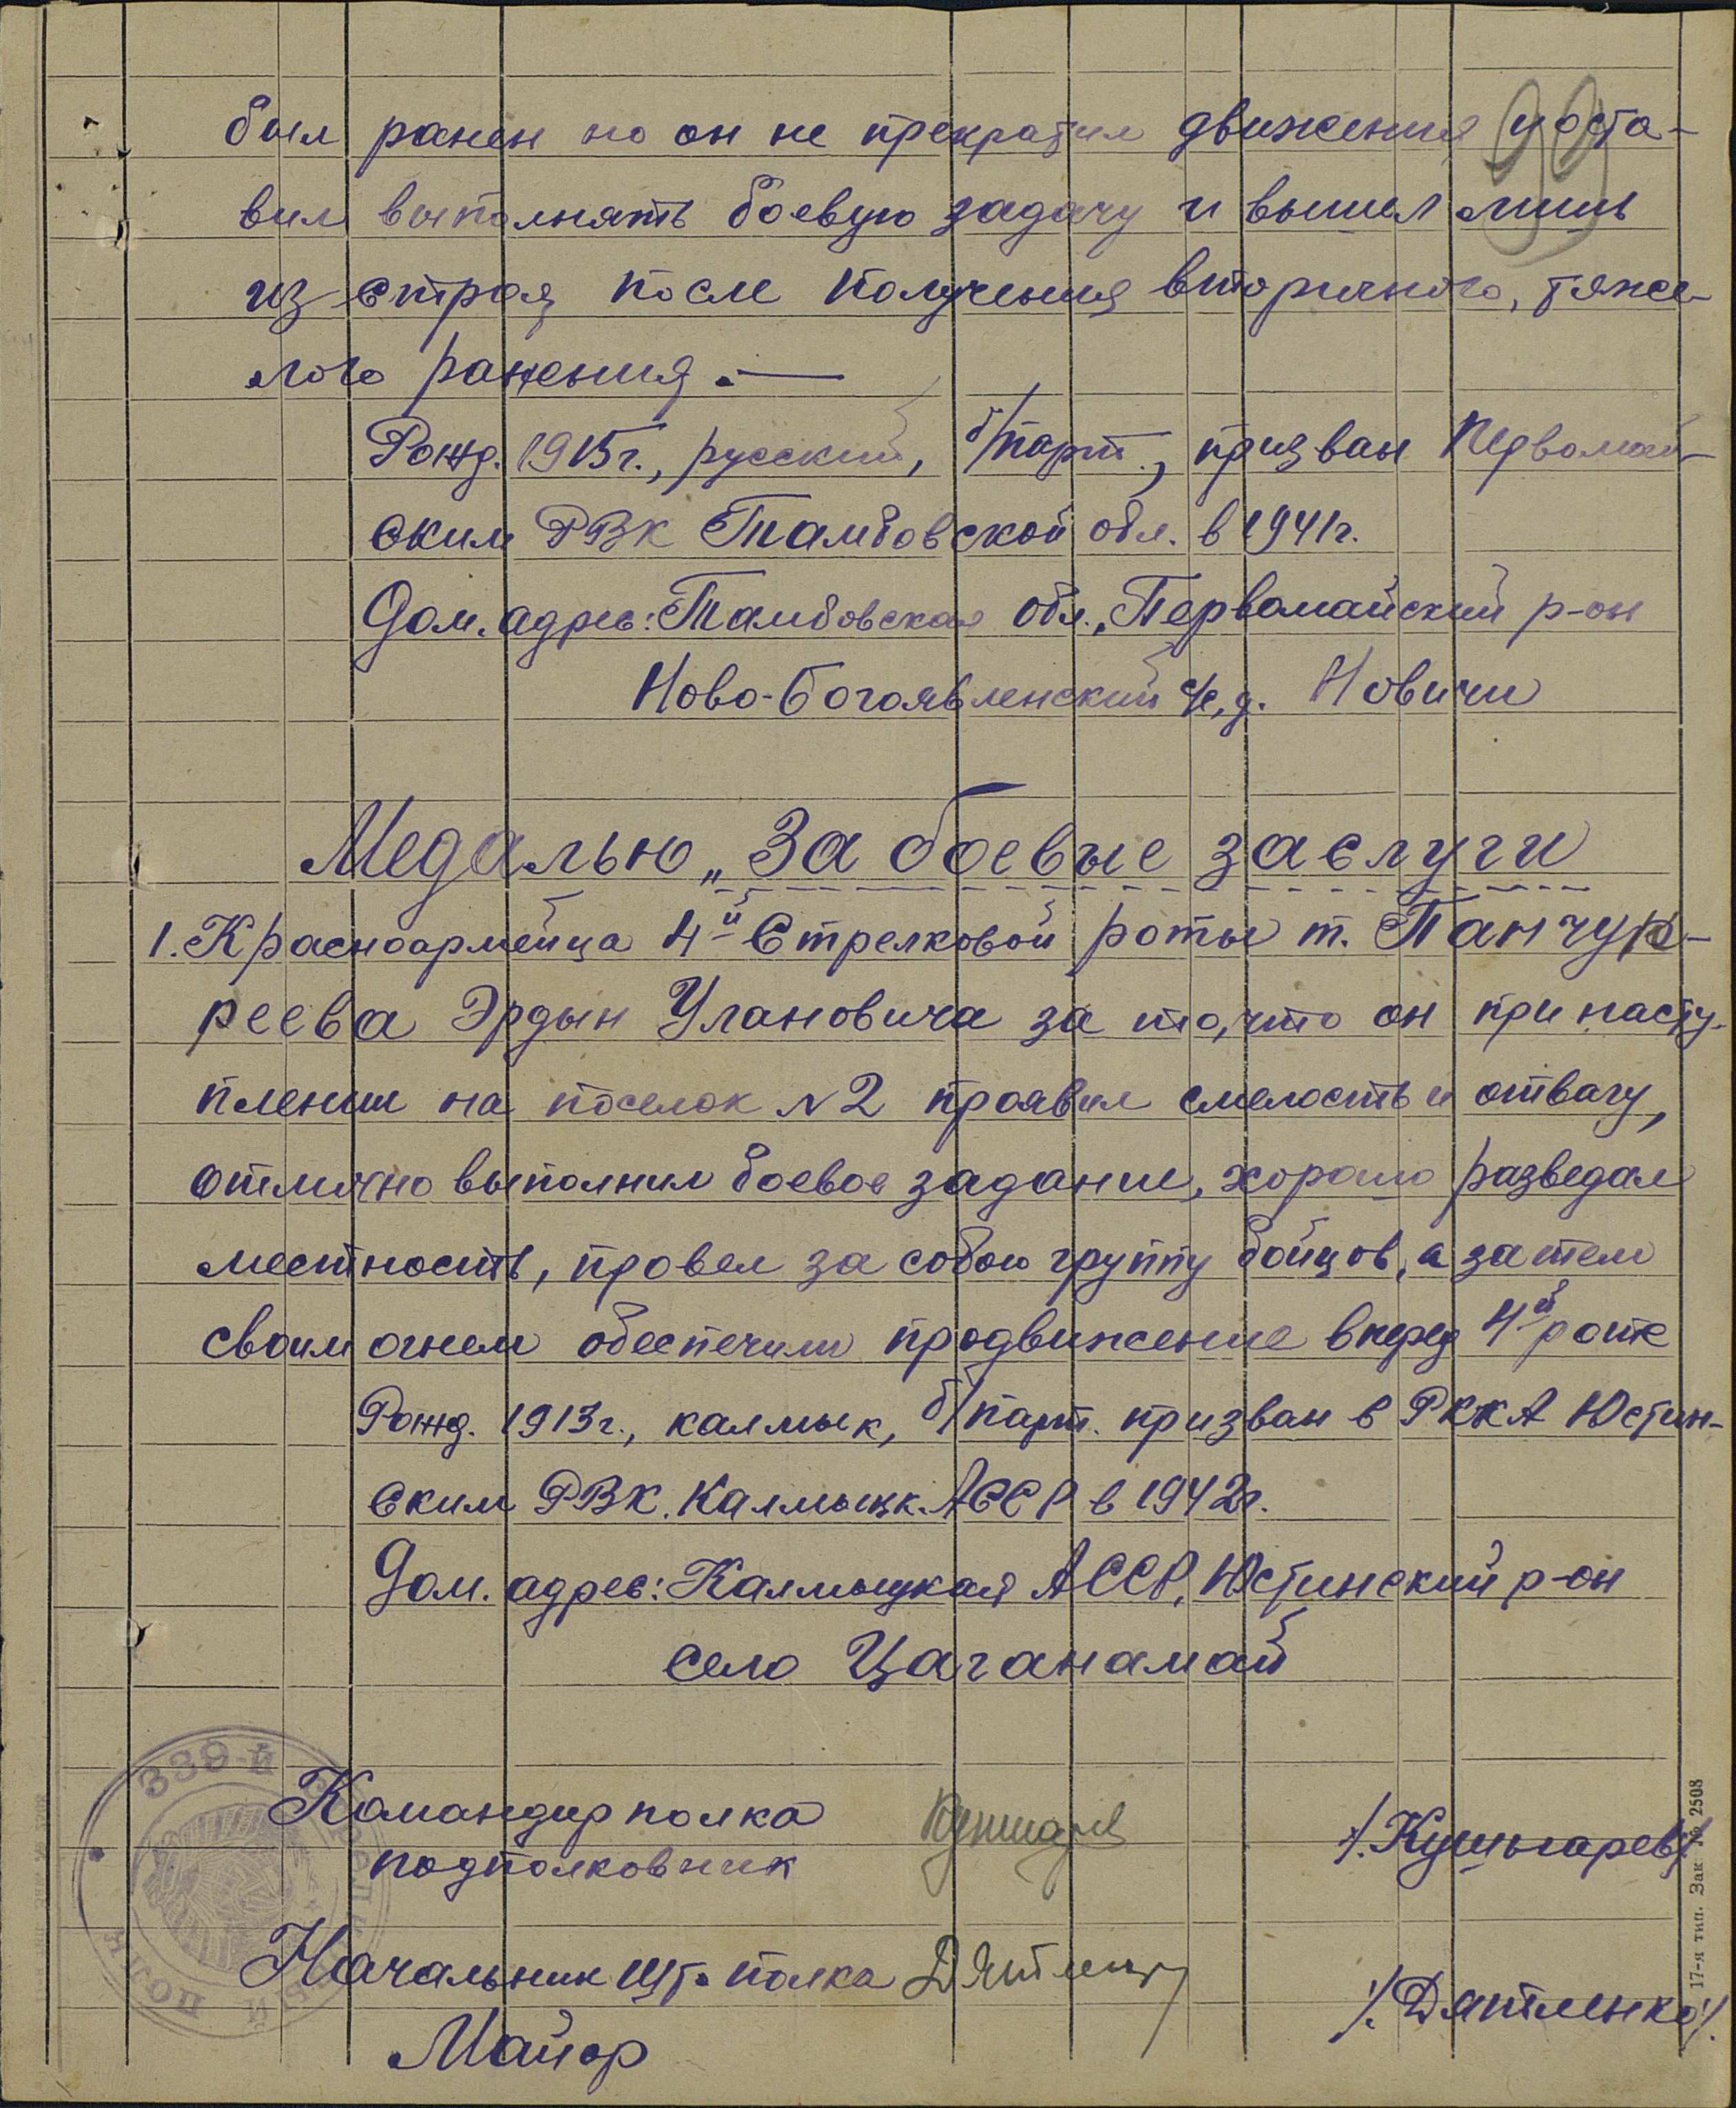 99
был ранен но он не прекратил движения и оста-
вил выполнять боевую задачу и вышел лишь
из строя после получения вторичного, тяже-
лого ранения. —
Рожд. 1915г., русский, б/парт., призван Первомай-
ским РВК Тамбовской обл. в 1941г.
Дом. адрес: Тамбовская обл., Первомайский р-он
Ново-Богоявленский с/с, д. Новичи
Медалью „За боевые заслуги
1. Красноармейца 4-й Стрелковой роты т. Панчук-
реева Эрдын Улановича за то, что он при насту-
плении на поселок N2 проявил смелость и отвагу,
отлично выполнил боевое задание, хорошо разведал
местность, провел за собою группу бойцов, а затем
своим огнем обеспечили продвижение вперед 4-й роте
Рожд. 1913г., калмык, б/парт. призван в РККА Юстин-
ским РВК. Калмыцк. АССР в 1942г.
Дом. адрес: Калмыцкая АССР, Юстинский р-он
село Цаганамай
339-й СТРЕЛКОВЫЙ ПОЛК
Командир полка
подполковник
/.Кушнарев/
Начальник шт. полка
/.Дятленко/.
Майор
17-я тип. Зак. № 2508